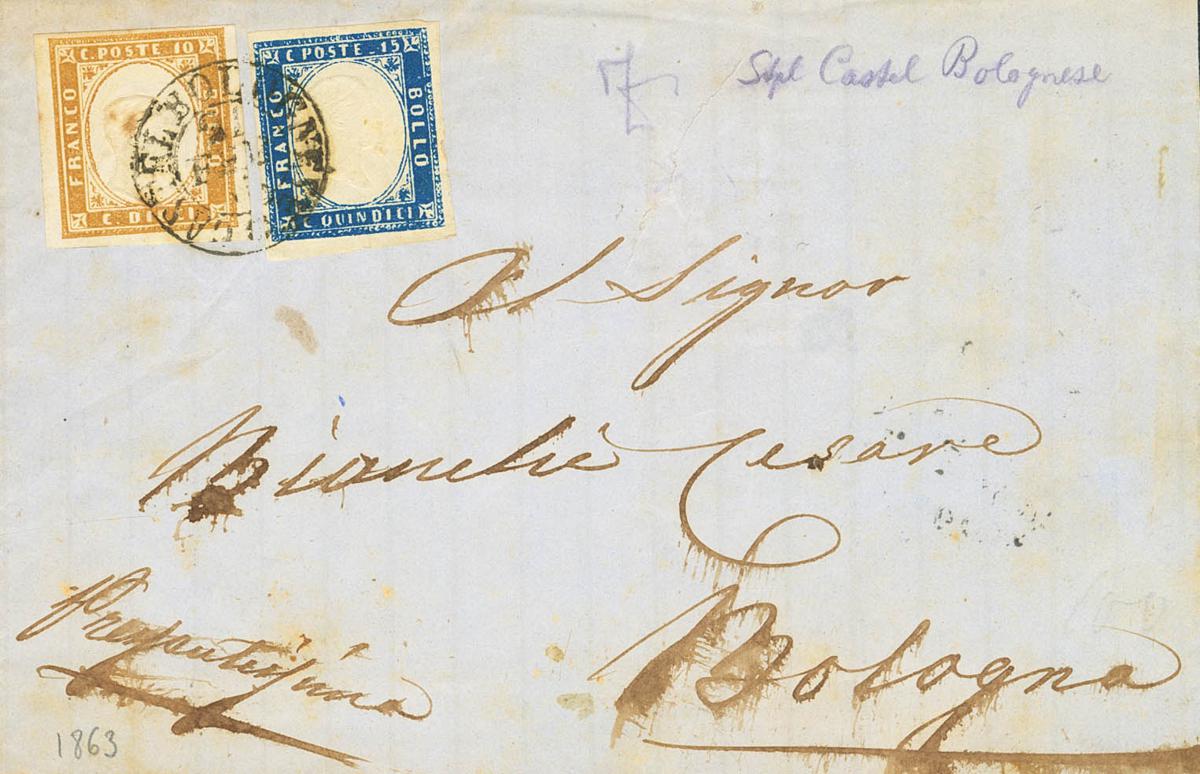 C. POSTE 10
FRANCO
C. DIECI
C POSTE 15
FRANCO
BOLLO
C QUINDICI
CASTEL BOLOGNESE
Stpl Castel Bolognese
Al Signor
Bianchi Cesare
Bologna
1863